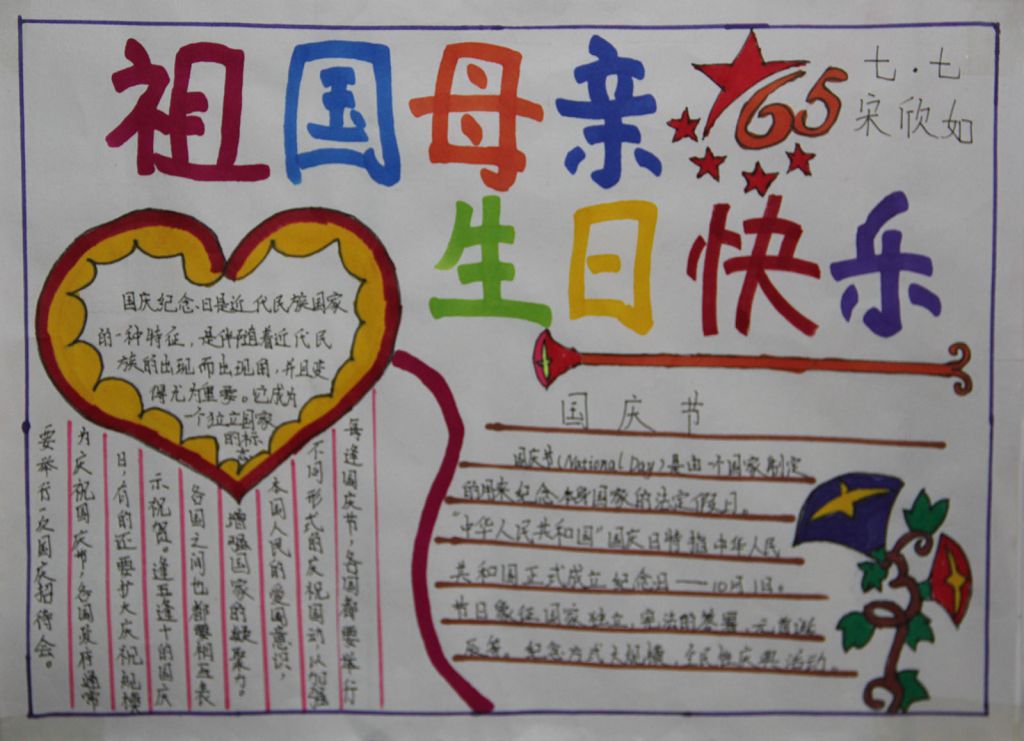 祖国母亲
65
七·七
宋欣如
生日快乐
国庆纪念日是近代民族国家
的一种特征，是伴随着近代民
族的出现而出现的，并且变
得尤为重要。它成为
一个独立国家
的标
志
每逢国庆节，各国都要举行
不同形式的庆祝国动，以加强
本国人民的爱国意识，
增强国家的凝聚力。
各国之间也都要相互表
示祝贺。逢五逢十的国庆
日，有的还要扩大庆祝规模
为庆祝国庆节，各国政府通常
要举行一次国庆招待会。
国庆节
国庆节(National Day)是由一个国家制定
的用来纪念本身国家的法定假日。
“中华人民共和国”国庆日特指中华人民
共和国正式成立纪念日——10月1日。
节日象征国家独立、宪法的签署、元首诞
辰等。纪念方式大规模、全民性庆典活动。